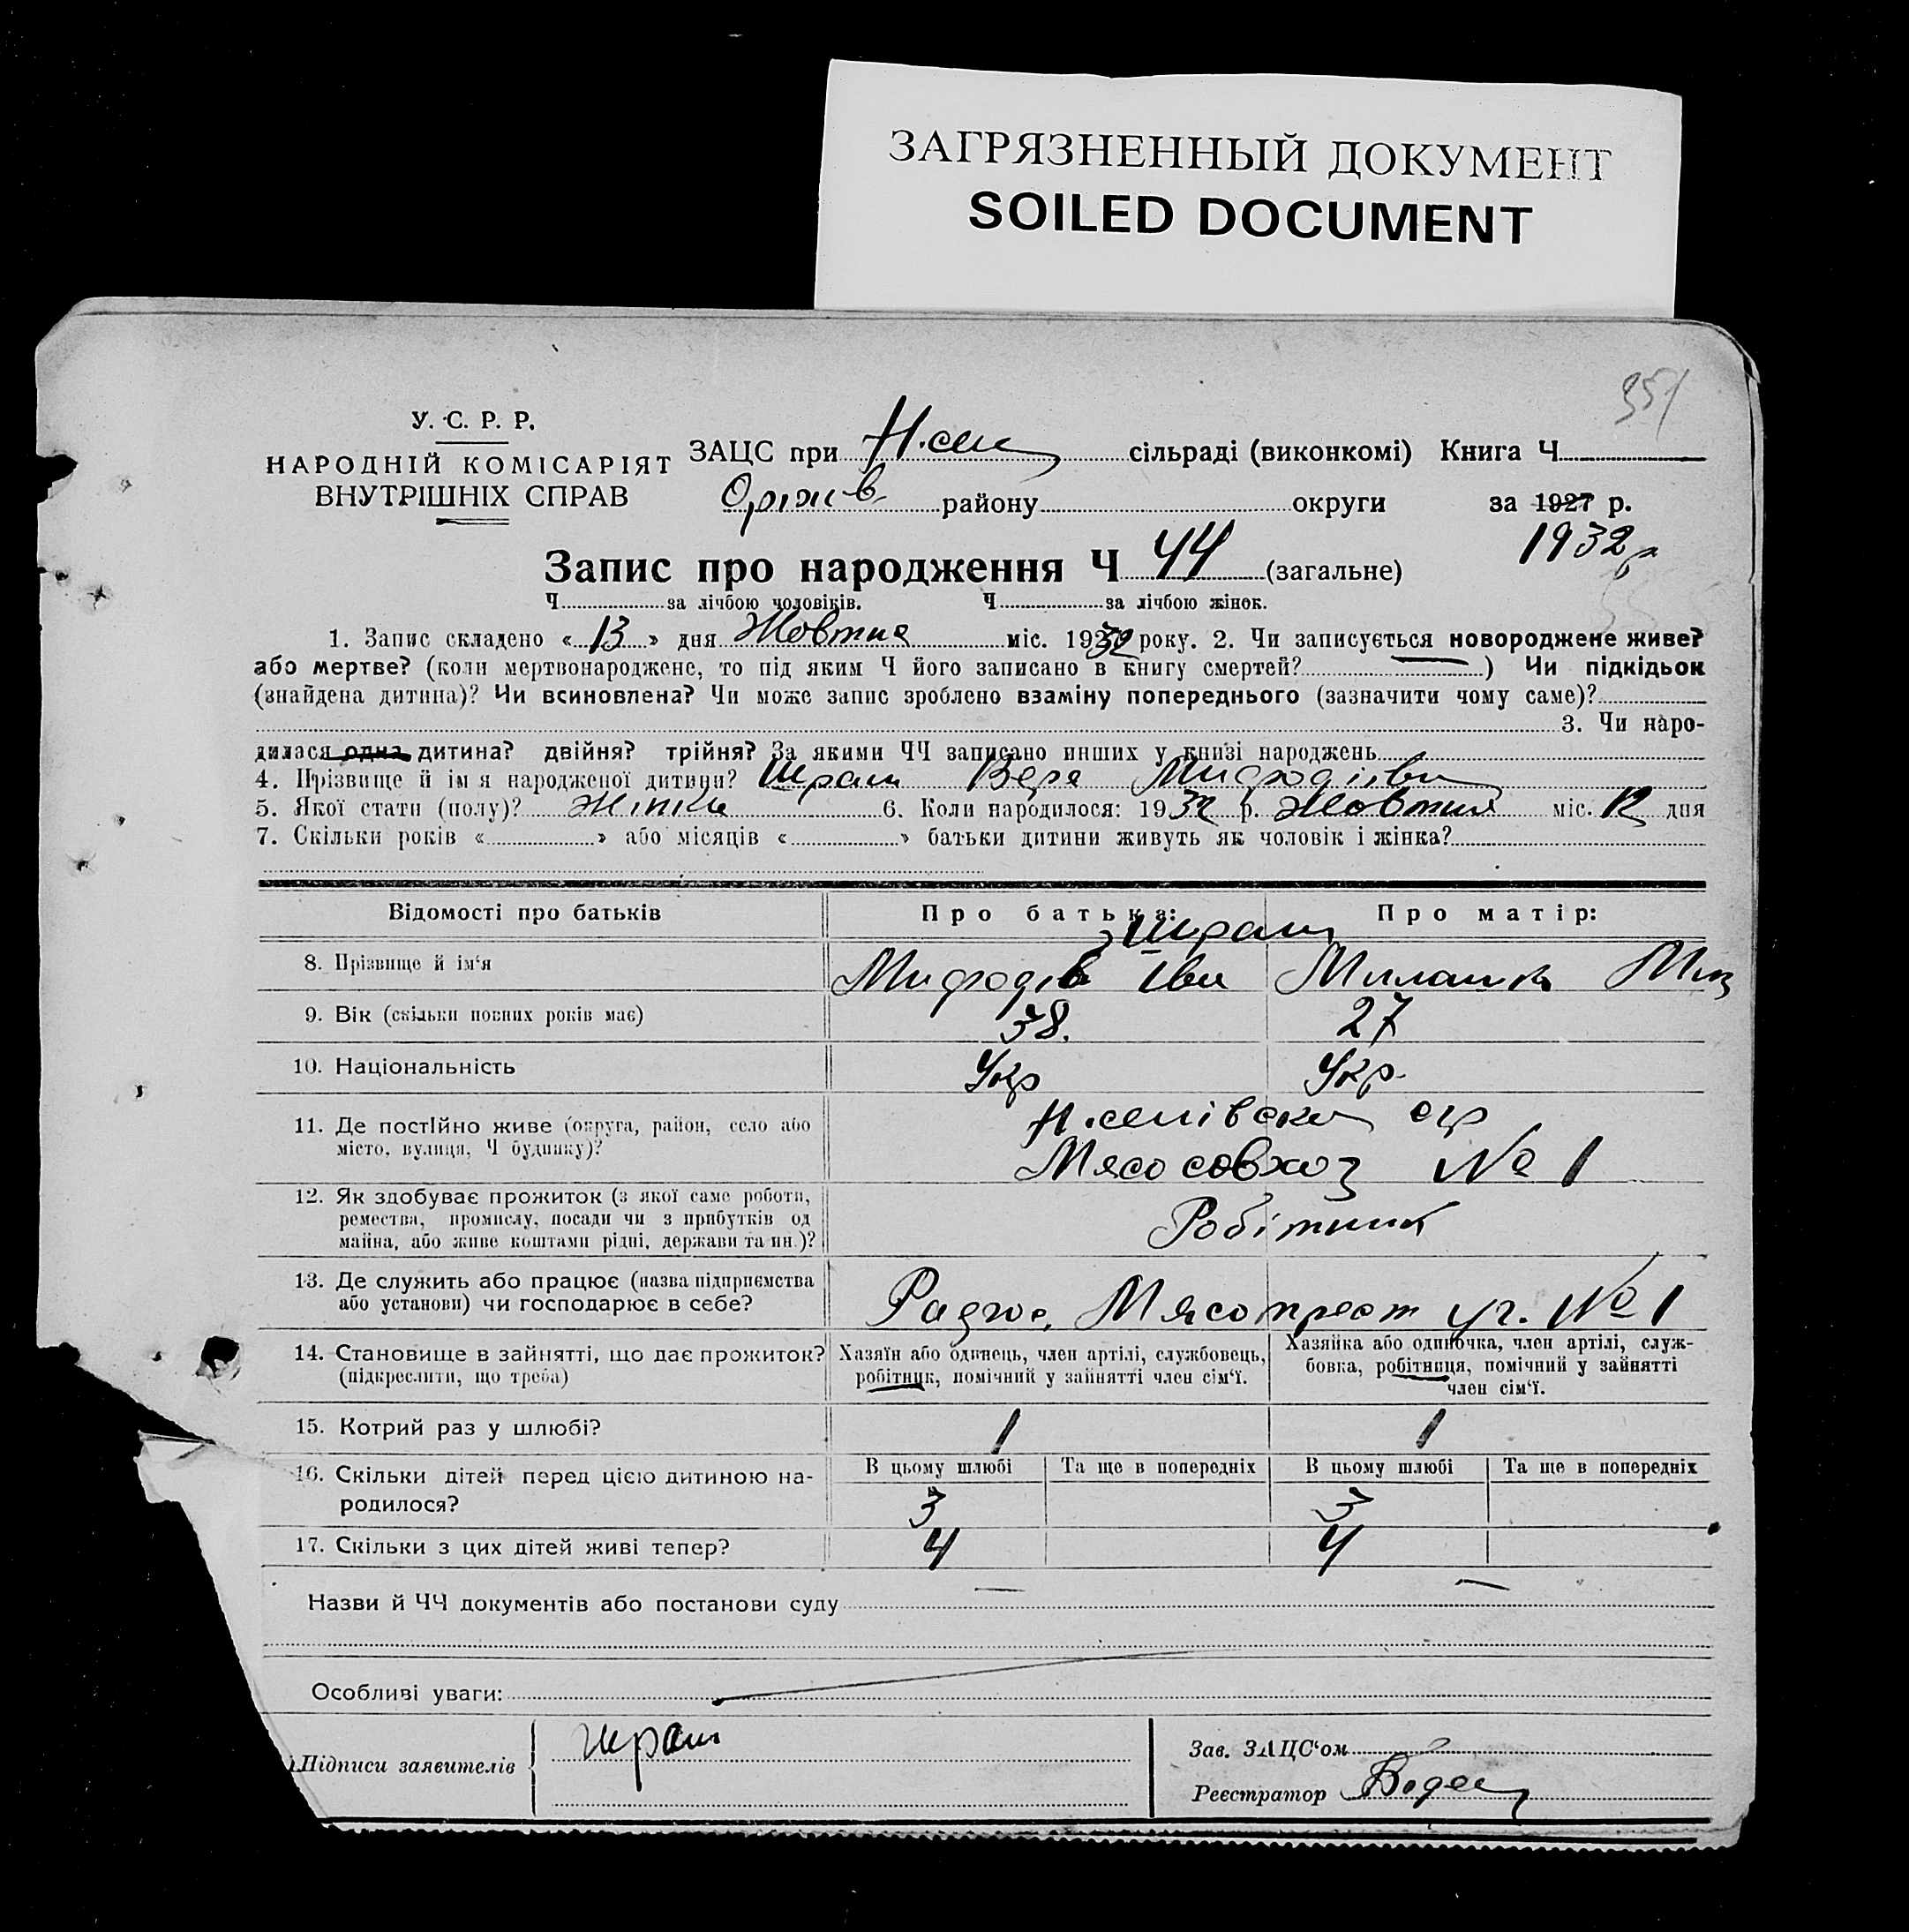 ЗАГРЯЗНЕННЫЙ ДОКУМЕНТ
SOILED DOCUMENT
351
У. С. Р. Р.
НАРОДНІЙ КОМІСАРІЯТ
ВНУТРІШНІХ СПРАВ
ЗАЦС при Н.сел сільраді (виконкомі) Книга Ч
Оріхів. району округи за 1927 р.
1932 р
Запис про народження Ч 44 (загальне)
Ч за лічбою чоловіків. Ч за лічбою жінок.
1. Запис складено « 13 » дня Жовтня міс. 1932 року. 2. Чи записується новороджене живе?
або мертве? (коли мертвонароджене, то під яким Ч його записано в книгу смертей? ) Чи підкідьок
(знайдена дитина)? Чи всиновлена? Чи може запис зроблено взаміну попереднього (зазначити чому саме)?
3. Чи наро-
дилася одна дитина? двійня? трійня? За якими ЧЧ записано инших у книзі народжень
4. Прізвище й ім'я народженої дитини? Шраш Вера Мифодіівн
5. Якої стати (полу)? Жіноч 6. Коли народилося: 1932 р. Жовтня міс. 12 дня
7. Скільки років « » або місяців « » батьки дитини живуть як чоловік і жінка?
Відомості про батьків Про батька: Про матір:
Шраш
8. Прізвище й ім'я Мифодів Іван Милашка
9. Вік (скільки повних років має) 38. 27
10. Національність Укр Укр.
11. Де постійно живе (округа, район, село або
місто, вулиця, Ч будинку)?
Н.селівська с/р
Мясосовхоз № 1
12. Як здобуває прожиток (з якої саме роботи,
ремества, промислу, посади чи з прибутків од
майна, або живе коштами рідні, держави та ин.)?
Робітник
13. Де служить або працює (назва підприємства
або установи) чи господарює в себе?
Радгос. Мясотрест уч. № 1
14. Становище в зайнятті, що дає прожиток?
(підкреслити, що треба)
Хазяїн або одинець, член артілі, службовець,
робітник, помічний у зайнятті член сім'ї.
Хазяйка або одиночка, член артілі, служ-
бовка, робітниця, помічний у зайнятті
член сім'ї.
15. Котрий раз у шлюбі? 1 1
16. Скільки дітей перед цією дитиною на-
родилося?
В цьому шлюбі Та ще в попередніх В цьому шлюбі Та ще в попередніх
3 3
17. Скільки з цих дітей живі тепер? 4 4
Назви й ЧЧ документів або постанови суду
Особливі уваги:
Підписи заявителів Шраш
Зав. ЗАЦС'ом
Реєстратор